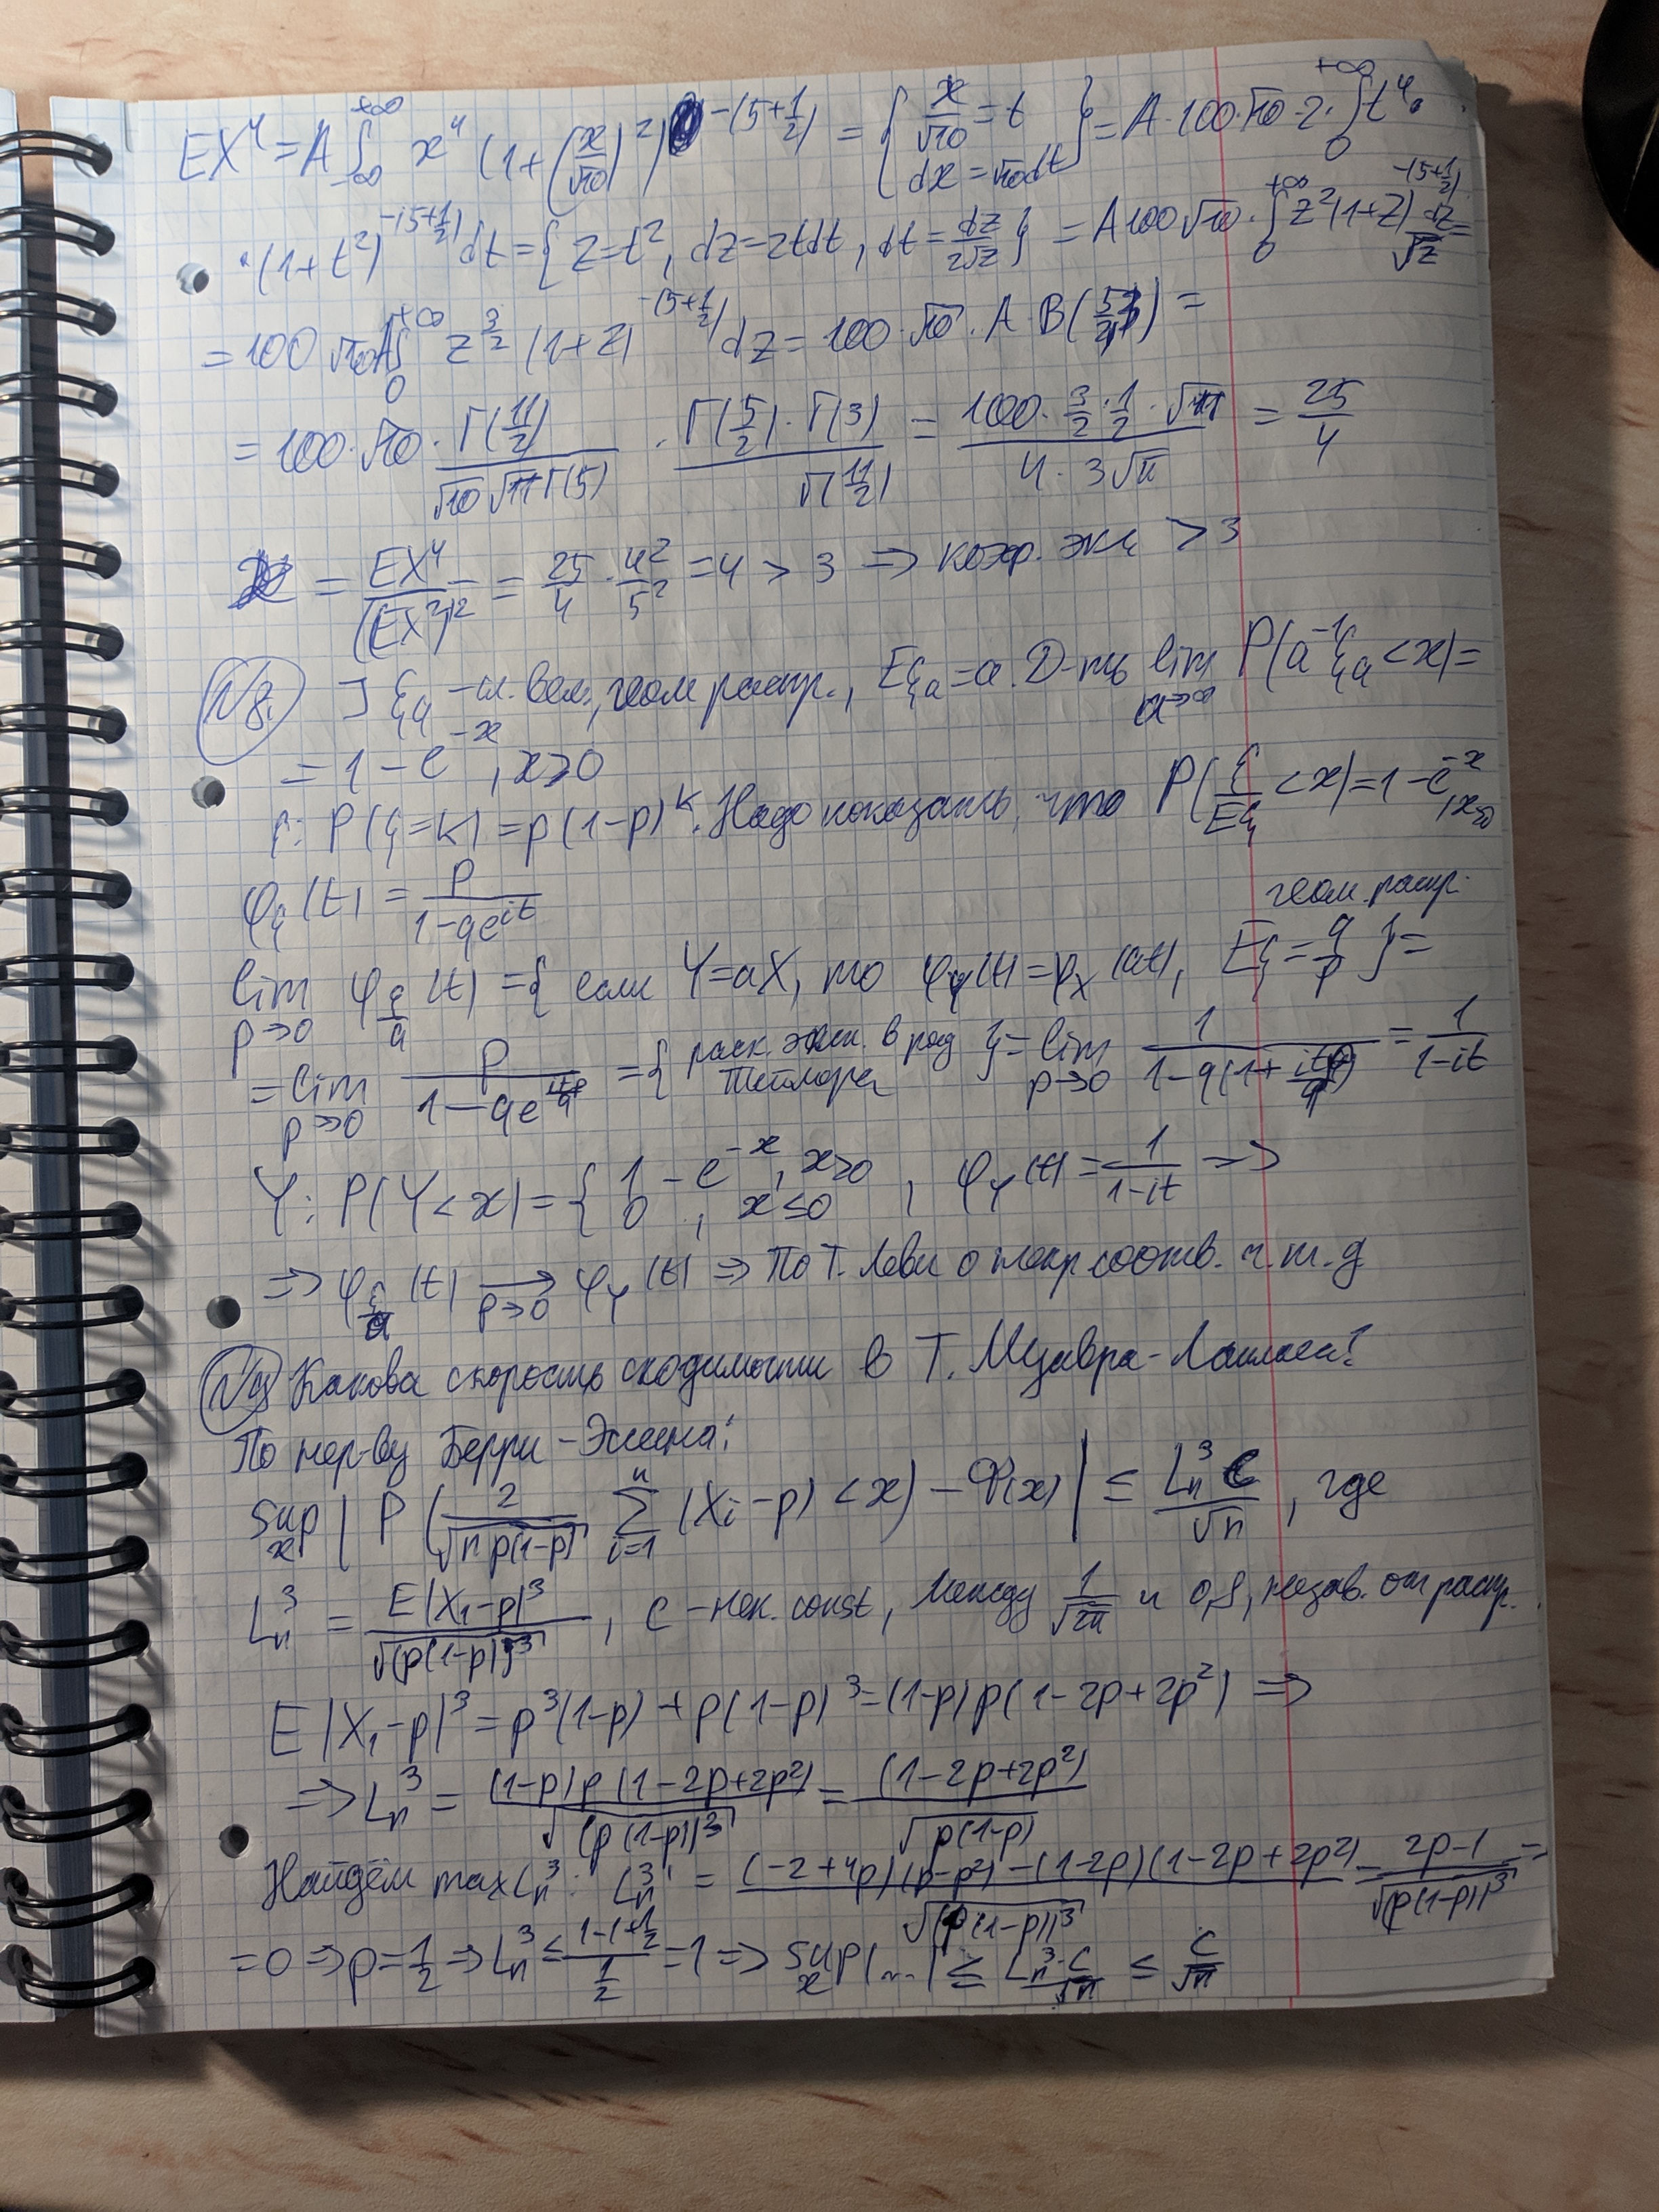 EX⁴ = A ∫_{-∞}^{+∞} x⁴ (1+(x/√10)²)^{-(5+1/2)} = { x/√10 = t, dx = √10dt } = A·100·√10·2·∫_0^{+∞} t⁴·
·(1+t²)^{-(5+1/2)} dt = { z=t², dz=2tdt, dt = dz/2√z } = A100√10·∫_0^{+∞} z²(1+z)^{-(5+1/2)} dz/√z =
= 100√10A ∫_0^{+∞} z^{3/2} (1+z)^{-(5+1/2)} dz = 100·√10·A·B(5/2, 3) =
= 100·√10· Γ(11/2)/(√10√πΓ(5)) · Γ(5/2)·Γ(3)/Γ(11/2) = (100·3/2·1/2·√π)/(4·3√π) = 25/4
= EX⁴/(EX²)² = 25/4 · 4²/5² = 4 > 3 ⇒ коэф. экц > 3
N8. ] ξ_a – сл. вел., геом распр., Eξ_a = a. Д-ть lim_{a→∞} P(a⁻¹ξ_a < x) =
= 1 - e^{-x}, x>0
P(ξ=k) = p(1-p)^k. Надо показать, что P(ξ/Eξ < x) = 1 - e^{-x}, x≥0
φ_ξ(t) = p/(1-qe^{it})
геом. распр.
lim_{p→0} φ_{ξ/a}(t) = { если Y=aX, то φ_Y(t) = φ_X(at), Eξ = q/p } =
= lim_{p→0} p/(1-qe^{itp/q}) = { раск. эксп. в ряд Тейлора } = lim_{p→0} 1/(1-q(1+itp/q)) = 1/(1-it)
Y: P(Y<x) = { 1-e^{-x}, x>0; 0, x≤0 , φ_Y(t) = 1/(1-it) ⇒
⇒ φ_{ξ/a}(t) →_{p→0} φ_Y(t) ⇒ По Т. Леви о непр. соотв. ч.т.д
N9 Какова скорость сходимости в Т. Муавра-Лапласа?
По нер-ву Берри-Эссена:
sup_x | P( 2/√(np(1-p)) Σ_{i=1}^{n} (X_i-p) < x) - Φ(x) | ≤ L_n³C/√n, где
L_n³ = E|X₁-p|³/√(p(1-p))³, c – нек. const, между 1/√2π и 0,8, незав. от распр.
E|X₁-p|³ = p³(1-p) + p(1-p)³ = (1-p)p(1-2p+2p²) ⇒
⇒ L_n³ = (1-p)p(1-2p+2p²)/√(p(1-p))³ = (1-2p+2p²)/√p(1-p)
Найдём max L_n³: L_n³' = ((-2+4p)(p-p²) - (1-2p)(1-2p+2p²))/√(p(1-p))³ = (2p-1)/√(p(1-p))³ =
= 0 ⇒ p = 1/2 ⇒ L_n³ ≤ (1-1+1/2)/(1/2) = 1 ⇒ sup_x |...| ≤ L_n³·C/√n ≤ C/√n